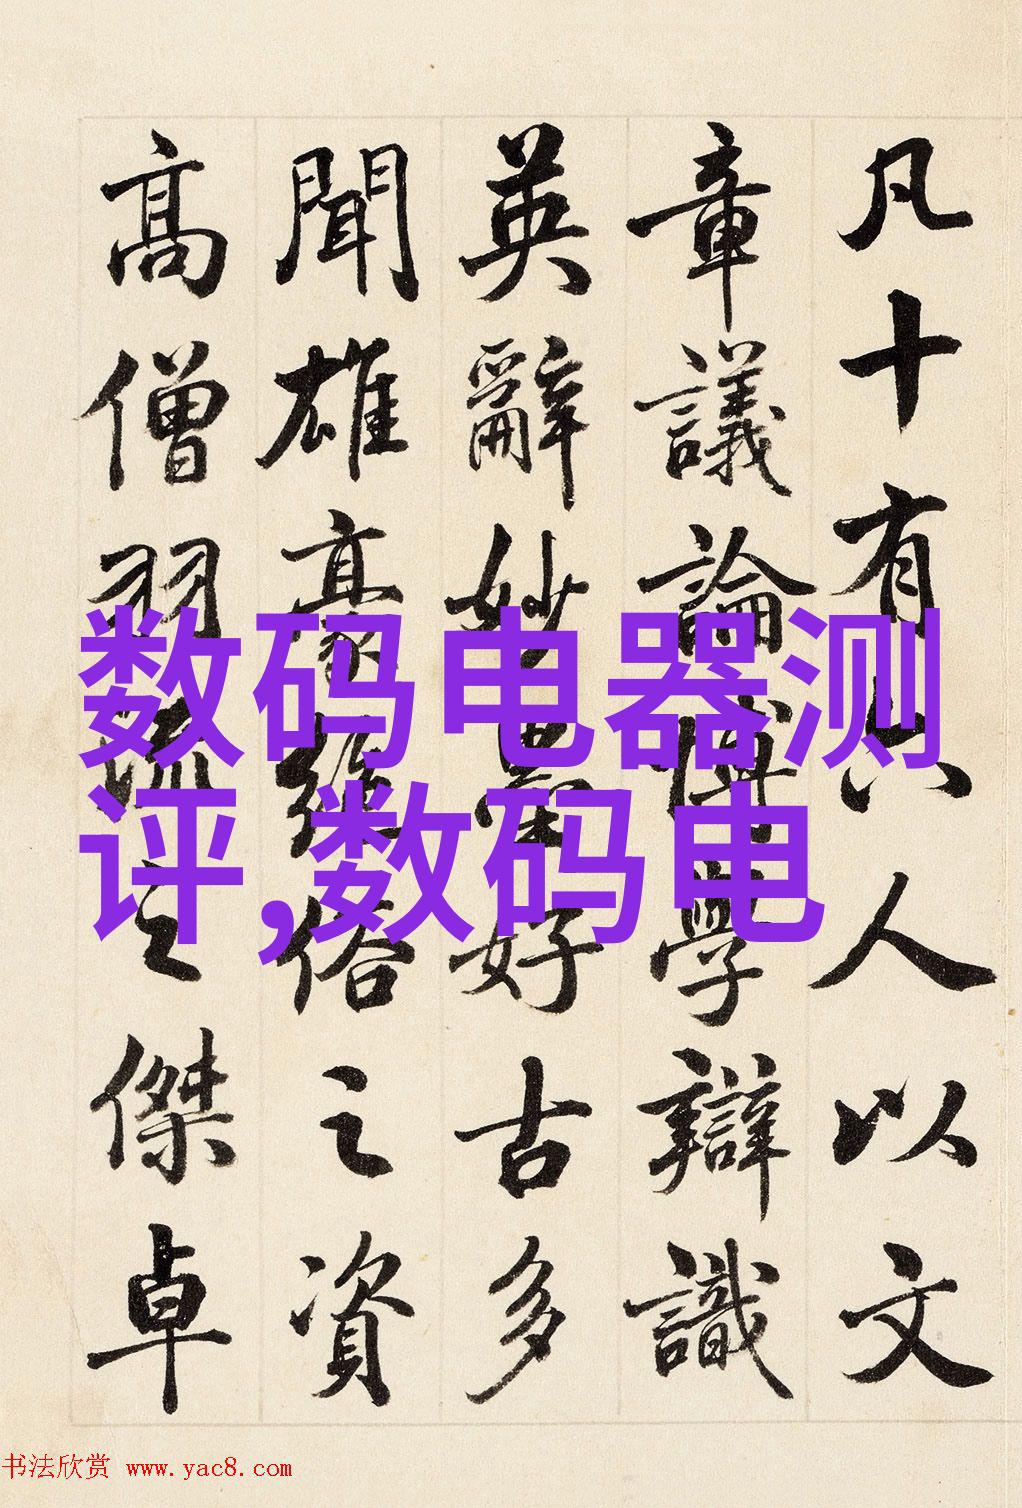 凡十有六人以文
章議論博學辯識
英辭妙墨好古多
聞雄豪絕俗之資
高僧羽流之傑卓
数码电器测
评,数码电
书法欣赏 www.yac8.com